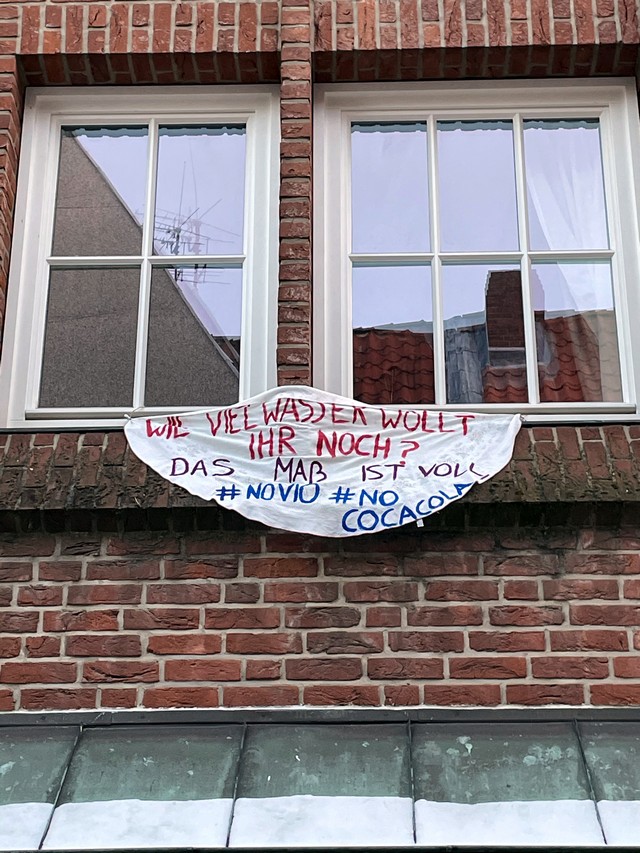 WIE VIEL WASSER WOLLT
IHR NOCH?
DAS MAß IST VOLL
#NOVIO #NO
COCACOLA